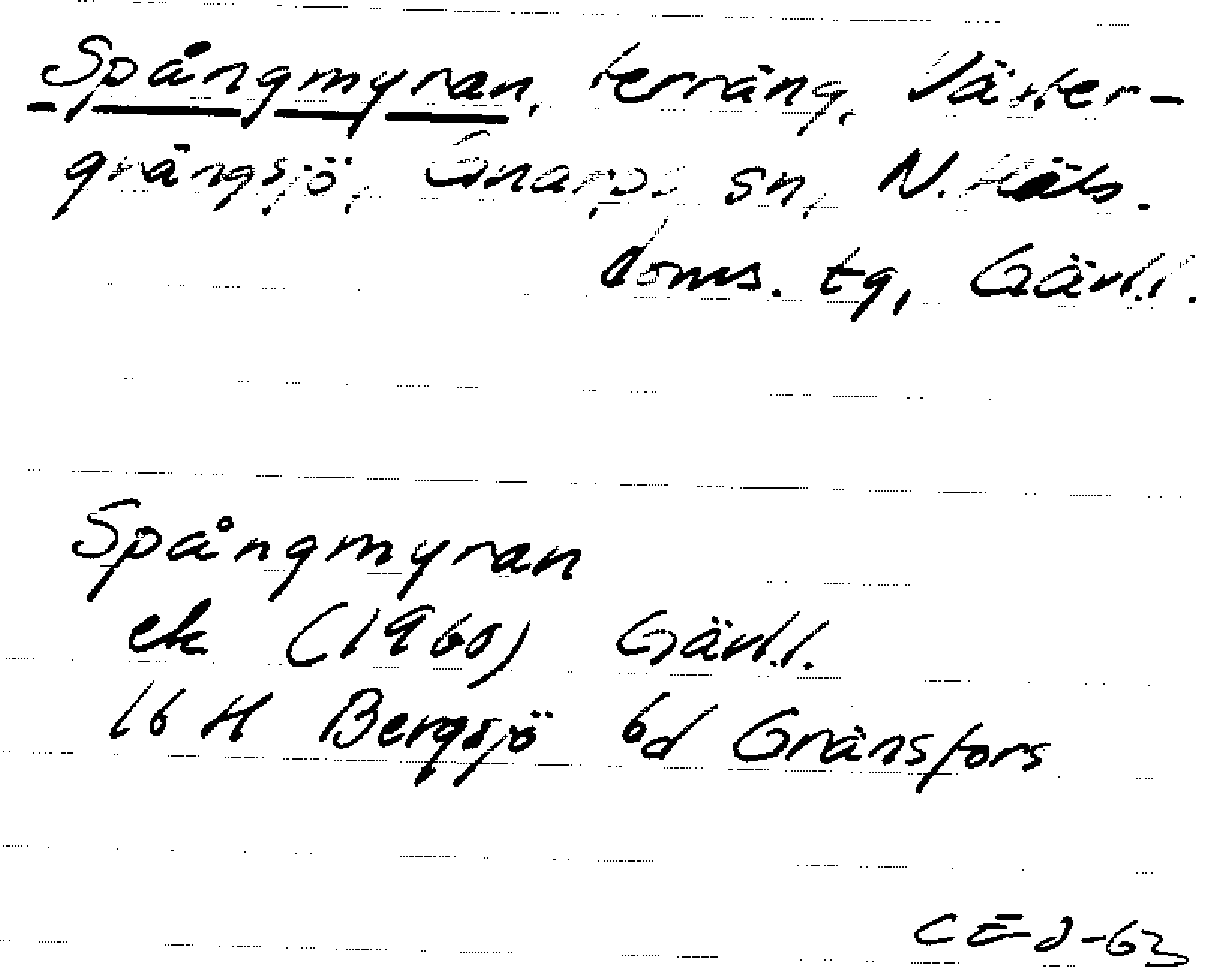 Spångmyran, terräng, Väster-
grängsjö, Gnarps sn, N. Häls.
doms. tg, Gävl.l.
Spångmyran
ek (1960) Gävl.l.
16 H Bergsjö 6d Gränsfors
CEJ-63